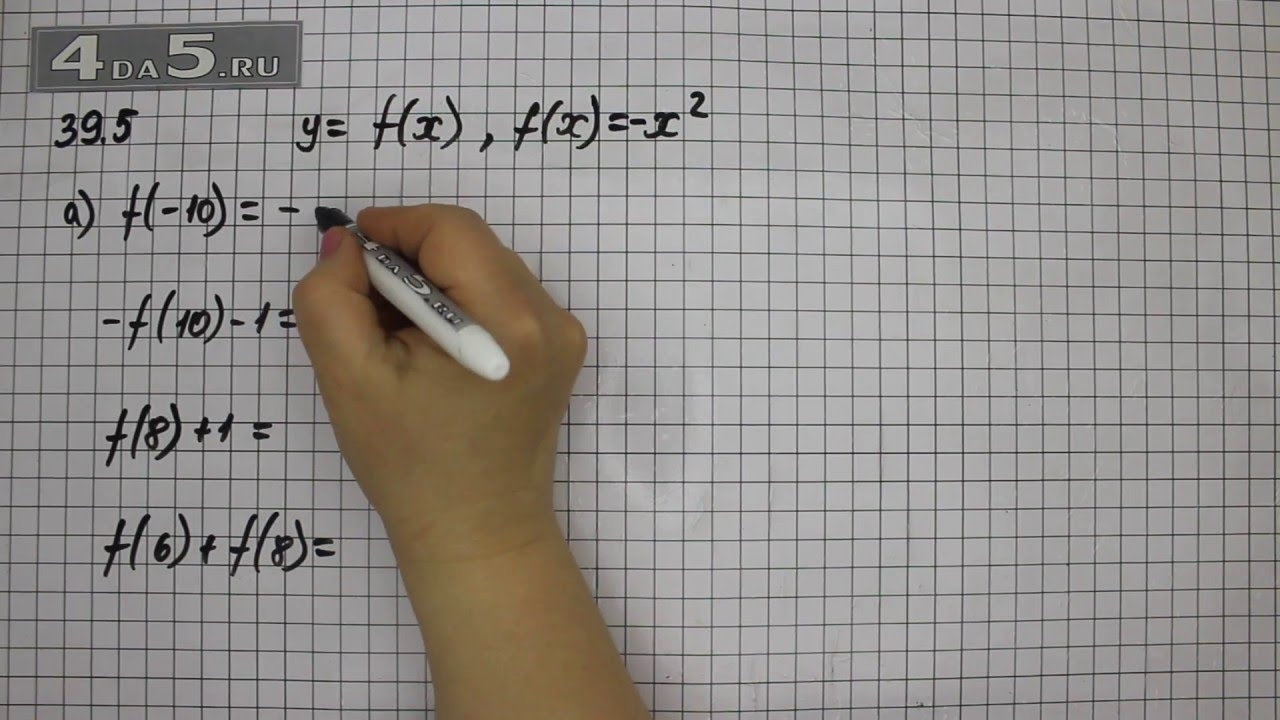 4DA5.RU
39.5 y= f(x), f(x)=-x²
а) f(-10)= -
4DA5.RU
-f(10)-1=
f(8)+1=
f(6)+f(8)=